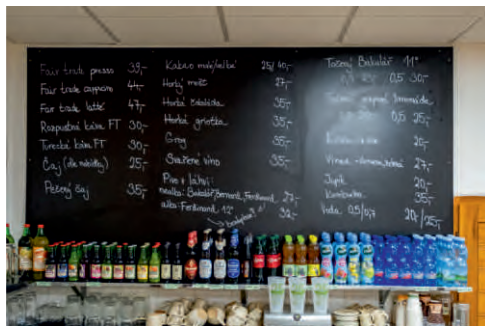 Fair trade presso 39,-
Fair trade cappucino 44,-
Fair trade latté 47,-
Rozpustná káva FT 30,-
Turecká káva FT 30,-
Čaj (dle nabídky) 25,-
Pečený čaj 35,-
Kakao malé/velké 25/40,-
Horký 27,-
Horká čokoláda 35,-
Horká griotka 35,-
Grog 35,-
Svařené víno 35,-
Pivo v láhvi:
nealko: Bakalář, Bernard, Ferdinand 27,-
alko: Ferdinand 12° 32,-
Točený Bakalář 11°
0,5 30,-
limonáda
0,5 25,-
20,-
Vinea 27,-
Jupík 20,-
Kombucha 35,-
Voda 0,5/0,7 20,-/25,-